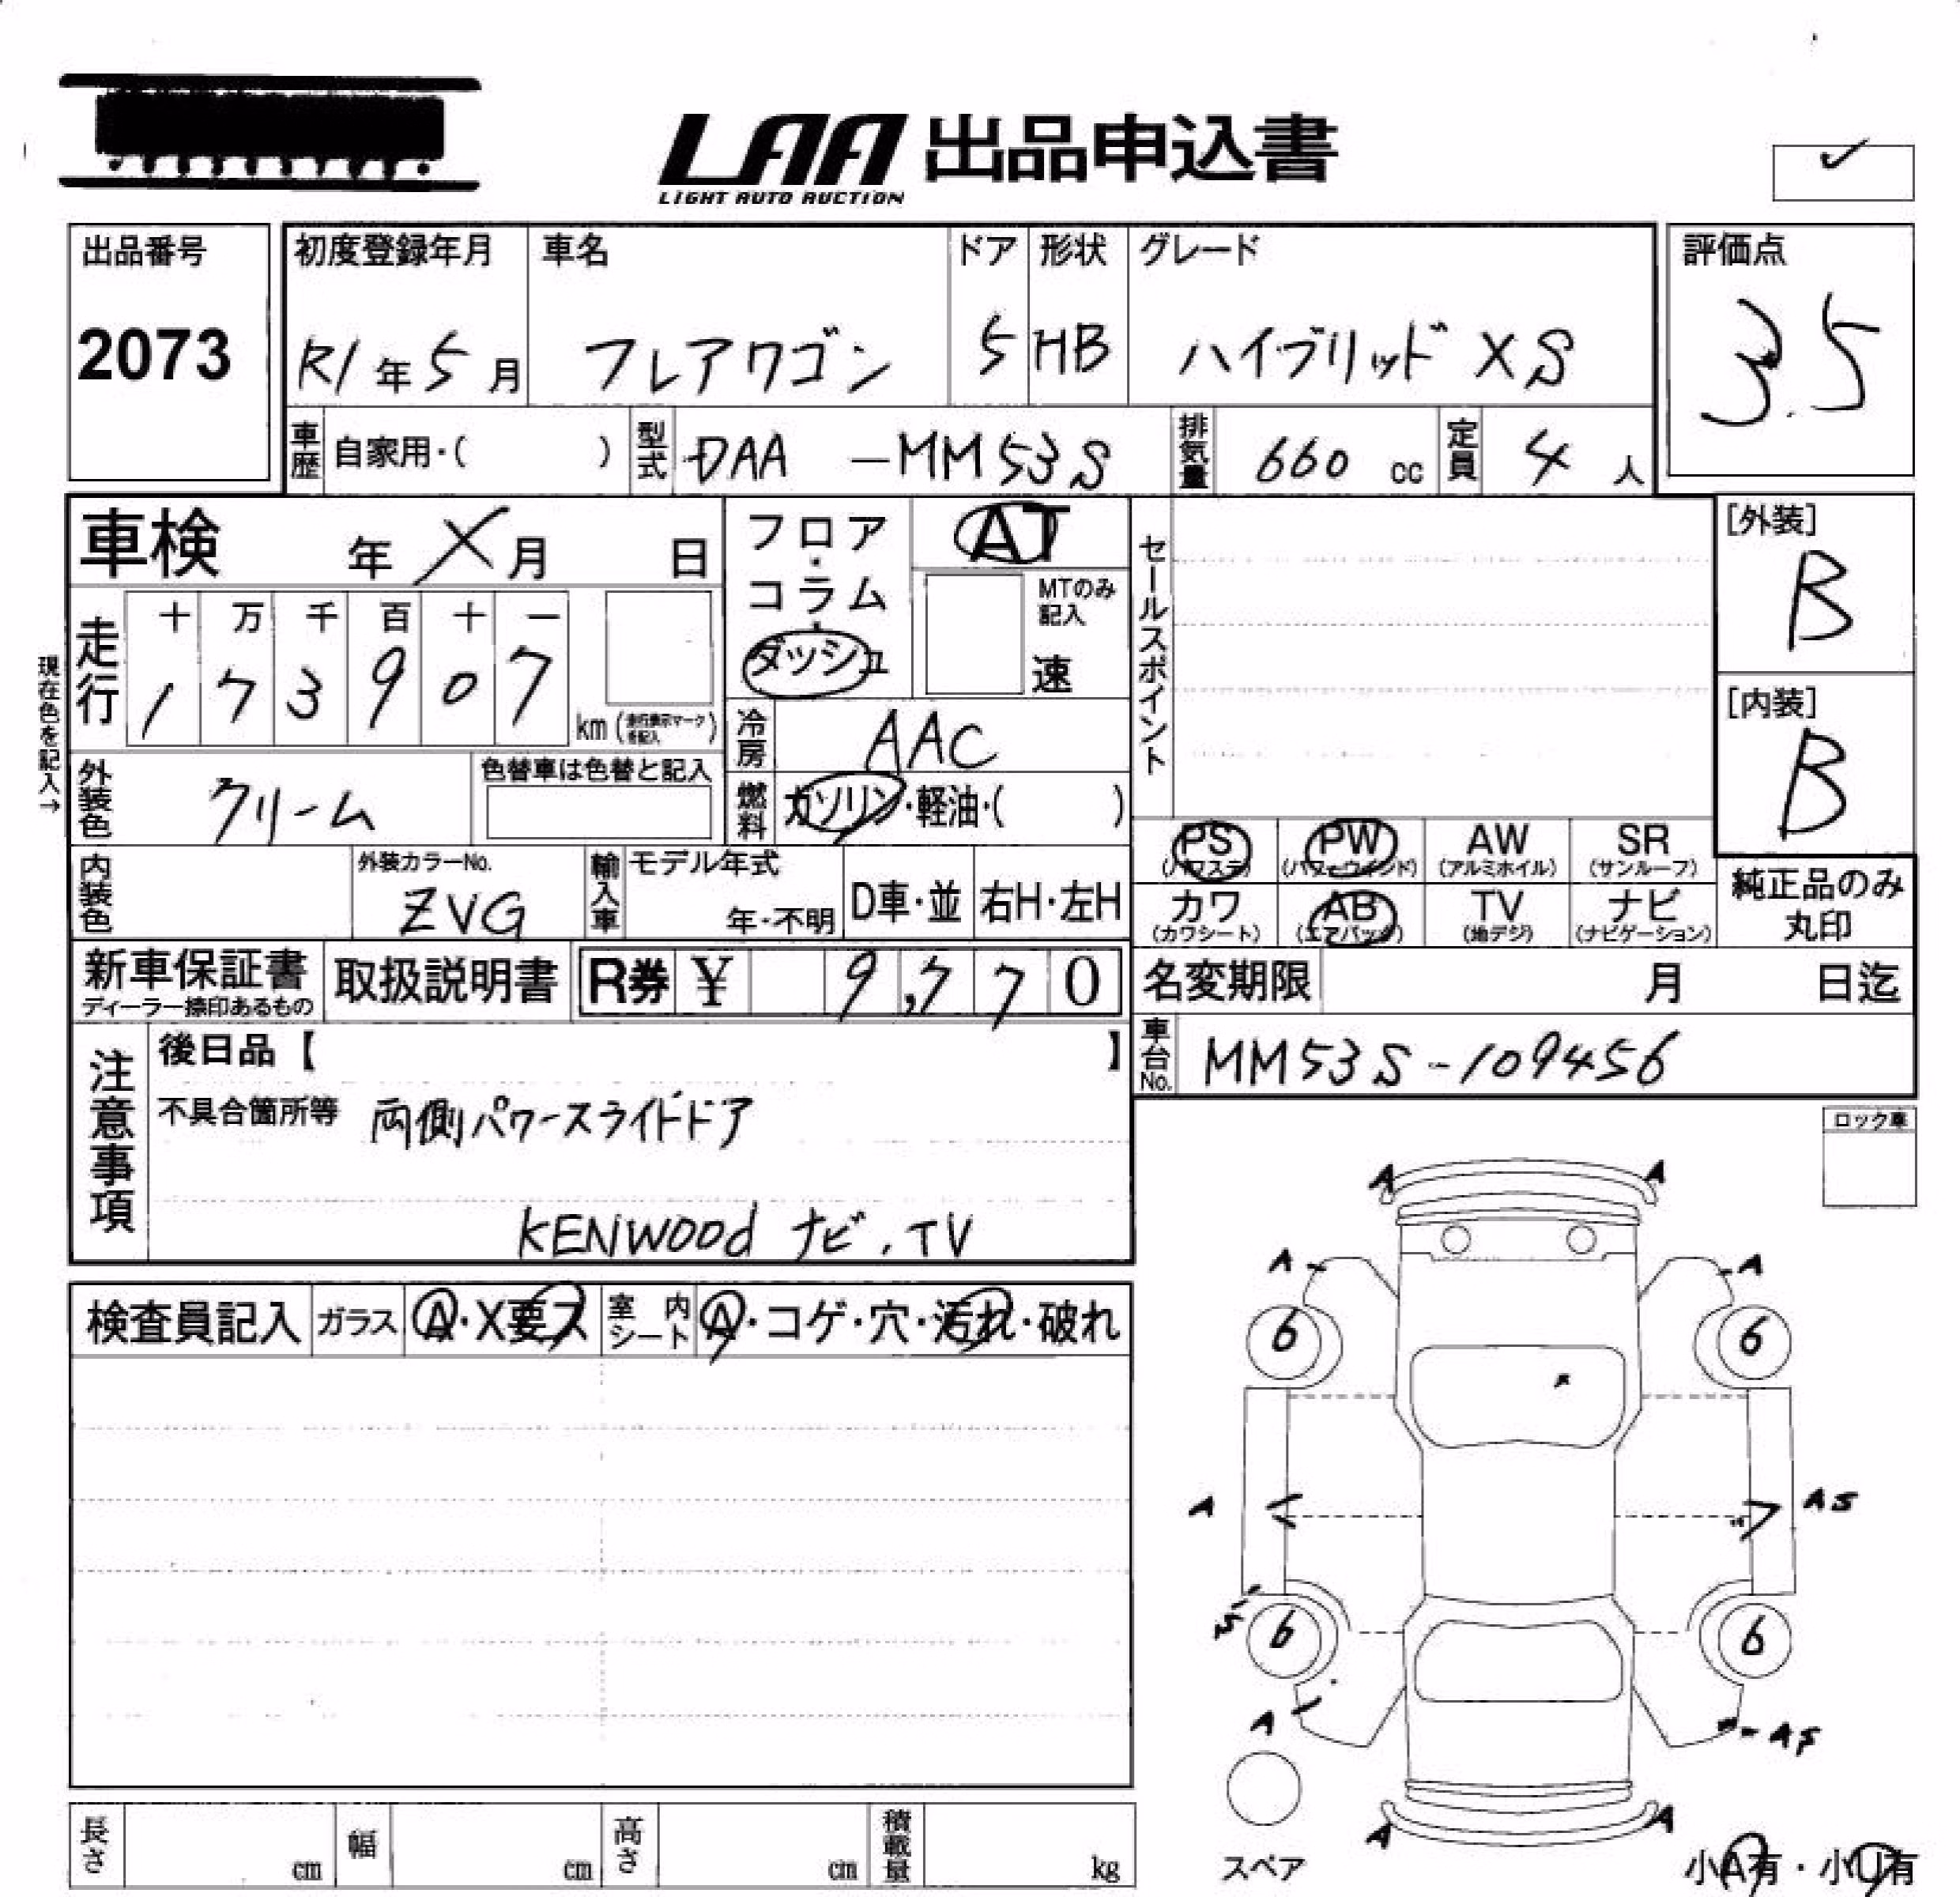 LAA 出品申込書
LIGHT AUTO AUCTION
✓
出品番号 初度登録年月 車名 ドア 形状 グレード 評価点
2073 R1年5月 フレアワゴン 5 HB ハイブリッド XS 3.5
車歴 自家用・( ) 型式 DAA -MM53S 排気量 660 cc 定員 4 人
車検 年 X 月 日 フロア・コラム・ダッシュ AT
MTのみ記入 速
セールスポイント
[外装] B
[内装] B
現在色を記入→
走行 十 万 千 百 十 一
1 7 3 9 0 7 km (走行表示マークを記入)
冷房 AAC
外装色 クリーム 色替車は色替と記入
燃料 ガソリン・軽油・( )
PS (パワステ) PW (パワーウインド) AW (アルミホイル) SR (サンルーフ)
カワ (カワシート) AB (エアバッグ) TV (地デジ) ナビ (ナビゲーション)
純正品のみ丸印
内装色 外装カラーNo. ZVG 輸入車 モデル年式 年・不明 D車・並 右H・左H
新車保証書 ディーラー捺印あるもの 取扱説明書 R券 ¥ 9,770
名変期限 月 日迄
車台No. MM53S-109456
注意事項 後日品【 】
不具合箇所等 両側パワースライドドア
KENWOOD ナビ.TV
ロック車
検査員記入 ガラス A・X要ス 室内シート A・コゲ・穴・汚れ・破れ
A A
A A
6 6
A AS
S
6 6
A
A A
スペア
小A有・小U有
長さ cm 幅 cm 高さ cm 積載量 kg